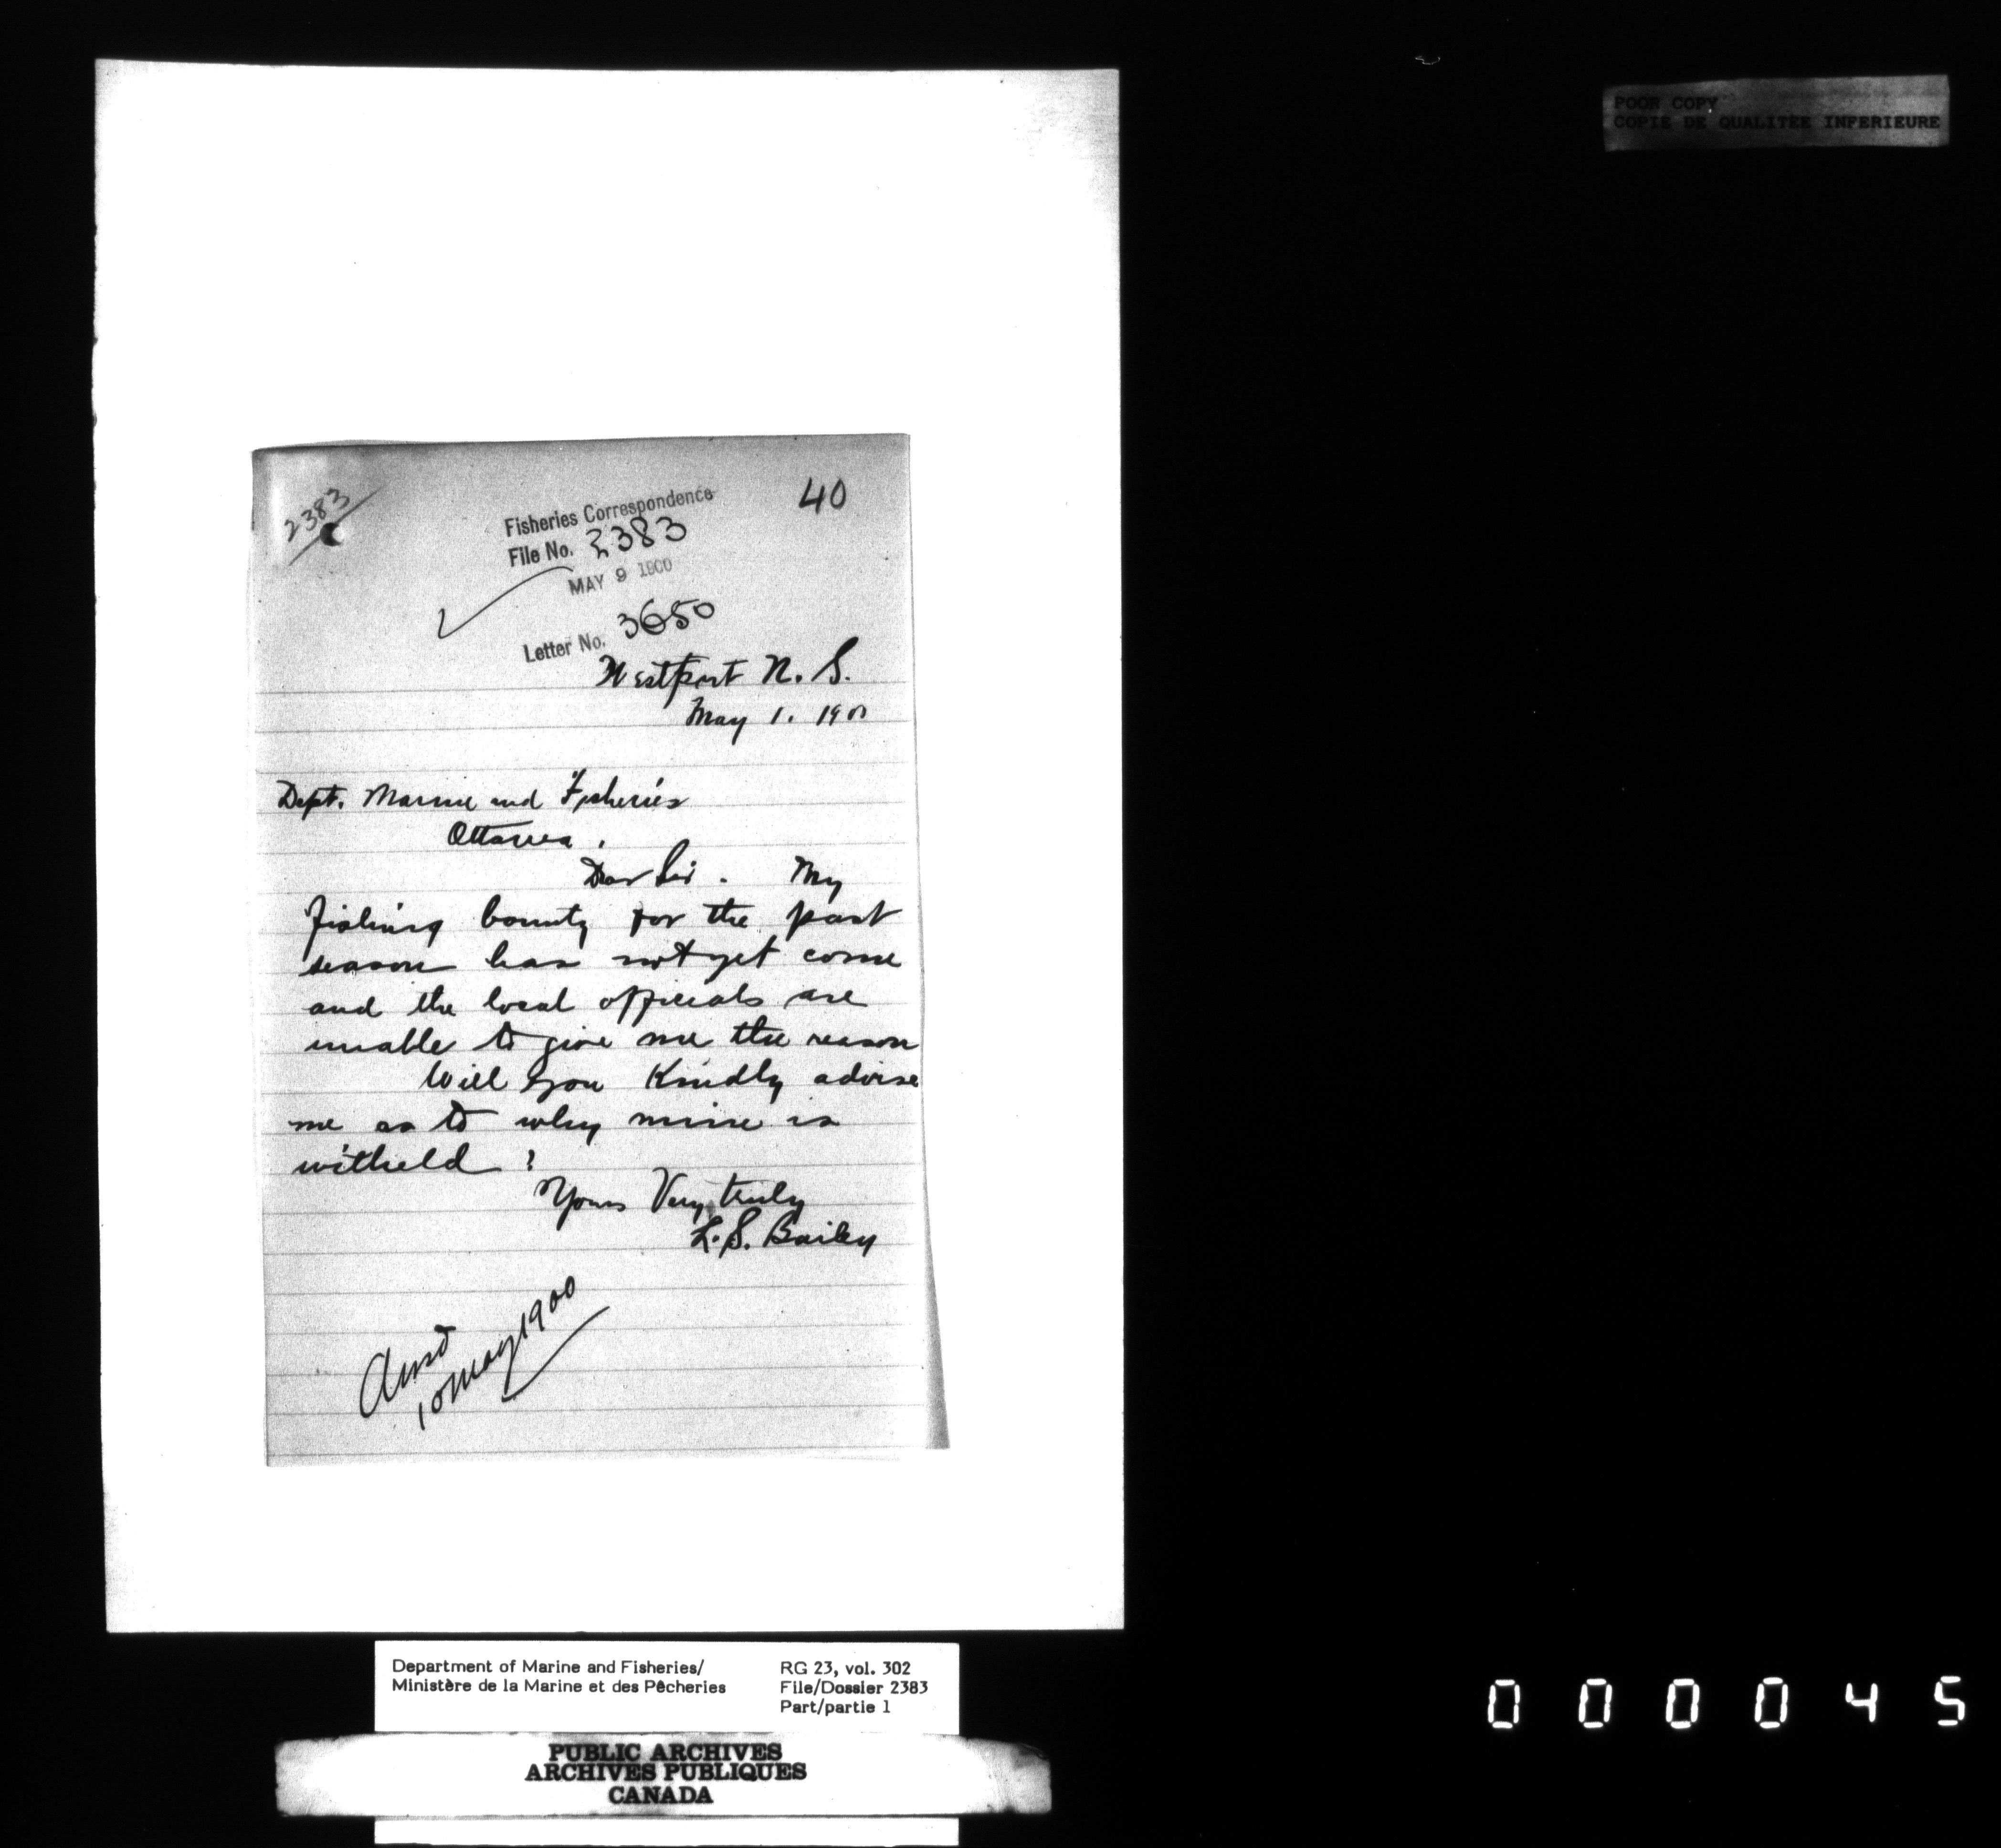 POOR COPY
COPIE DE QUALITEE INFERIEURE
2383
40
Fisheries Correspondence
File No. 2383
MAY 9 1900
Letter No. 3650
Westport N. S.
May 1. 1900
Dept. Marine and Fisheries
Ottawa.
Dear Sir. My
fishing bounty for the past
season has not yet come
and the local officials are
unable to give me the reason
Will you Kindly advise
me as to why mine is
witheld ?
Yours Very truly
L. S. Bailey
Ansd
10 May 1900
Department of Marine and Fisheries/
Ministère de la Marine et des Pêcheries
RG 23, vol. 302
File/Dossier 2383
Part/partie 1
PUBLIC ARCHIVES
ARCHIVES PUBLIQUES
CANADA
000045